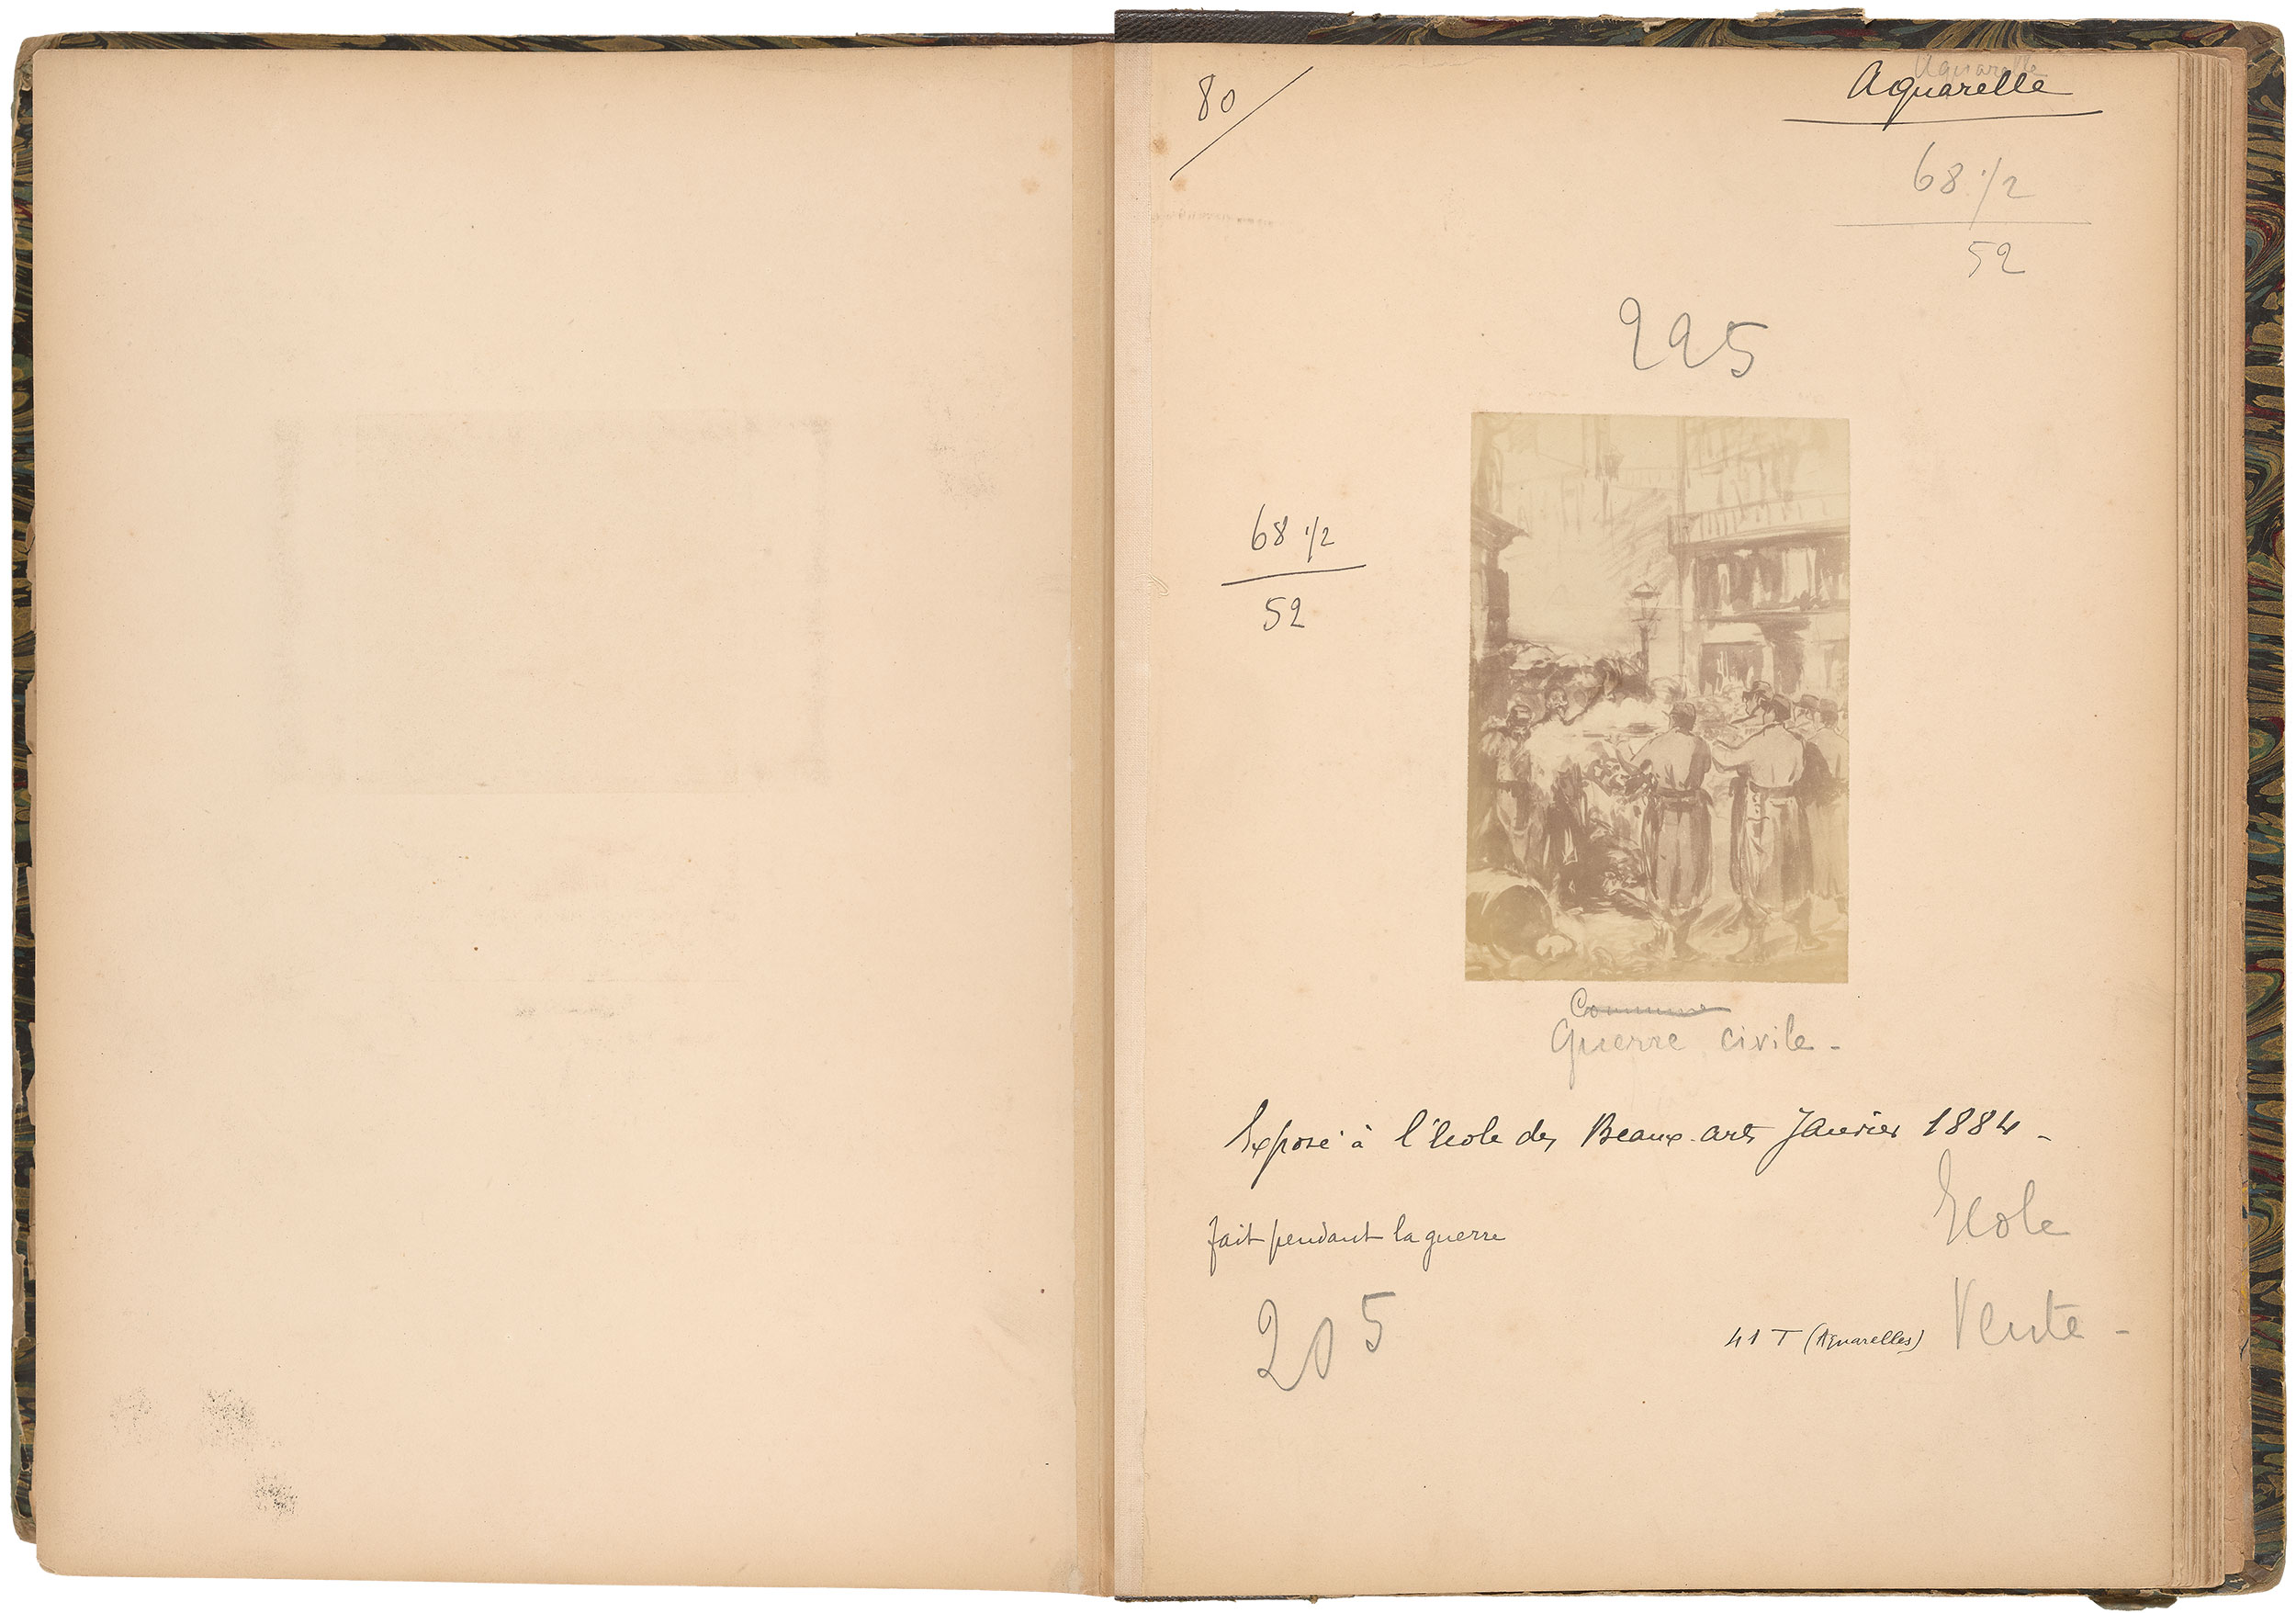 80
Aquarelle
Aquarelle
68 1/2
52
225
68 1/2
52
Commune
Guerre civile -
Exposé à l'École des Beaux-arts Janvier 1884 -
Ecole
fait pendant la guerre
205
41 T (Aquarelles)
Vente -